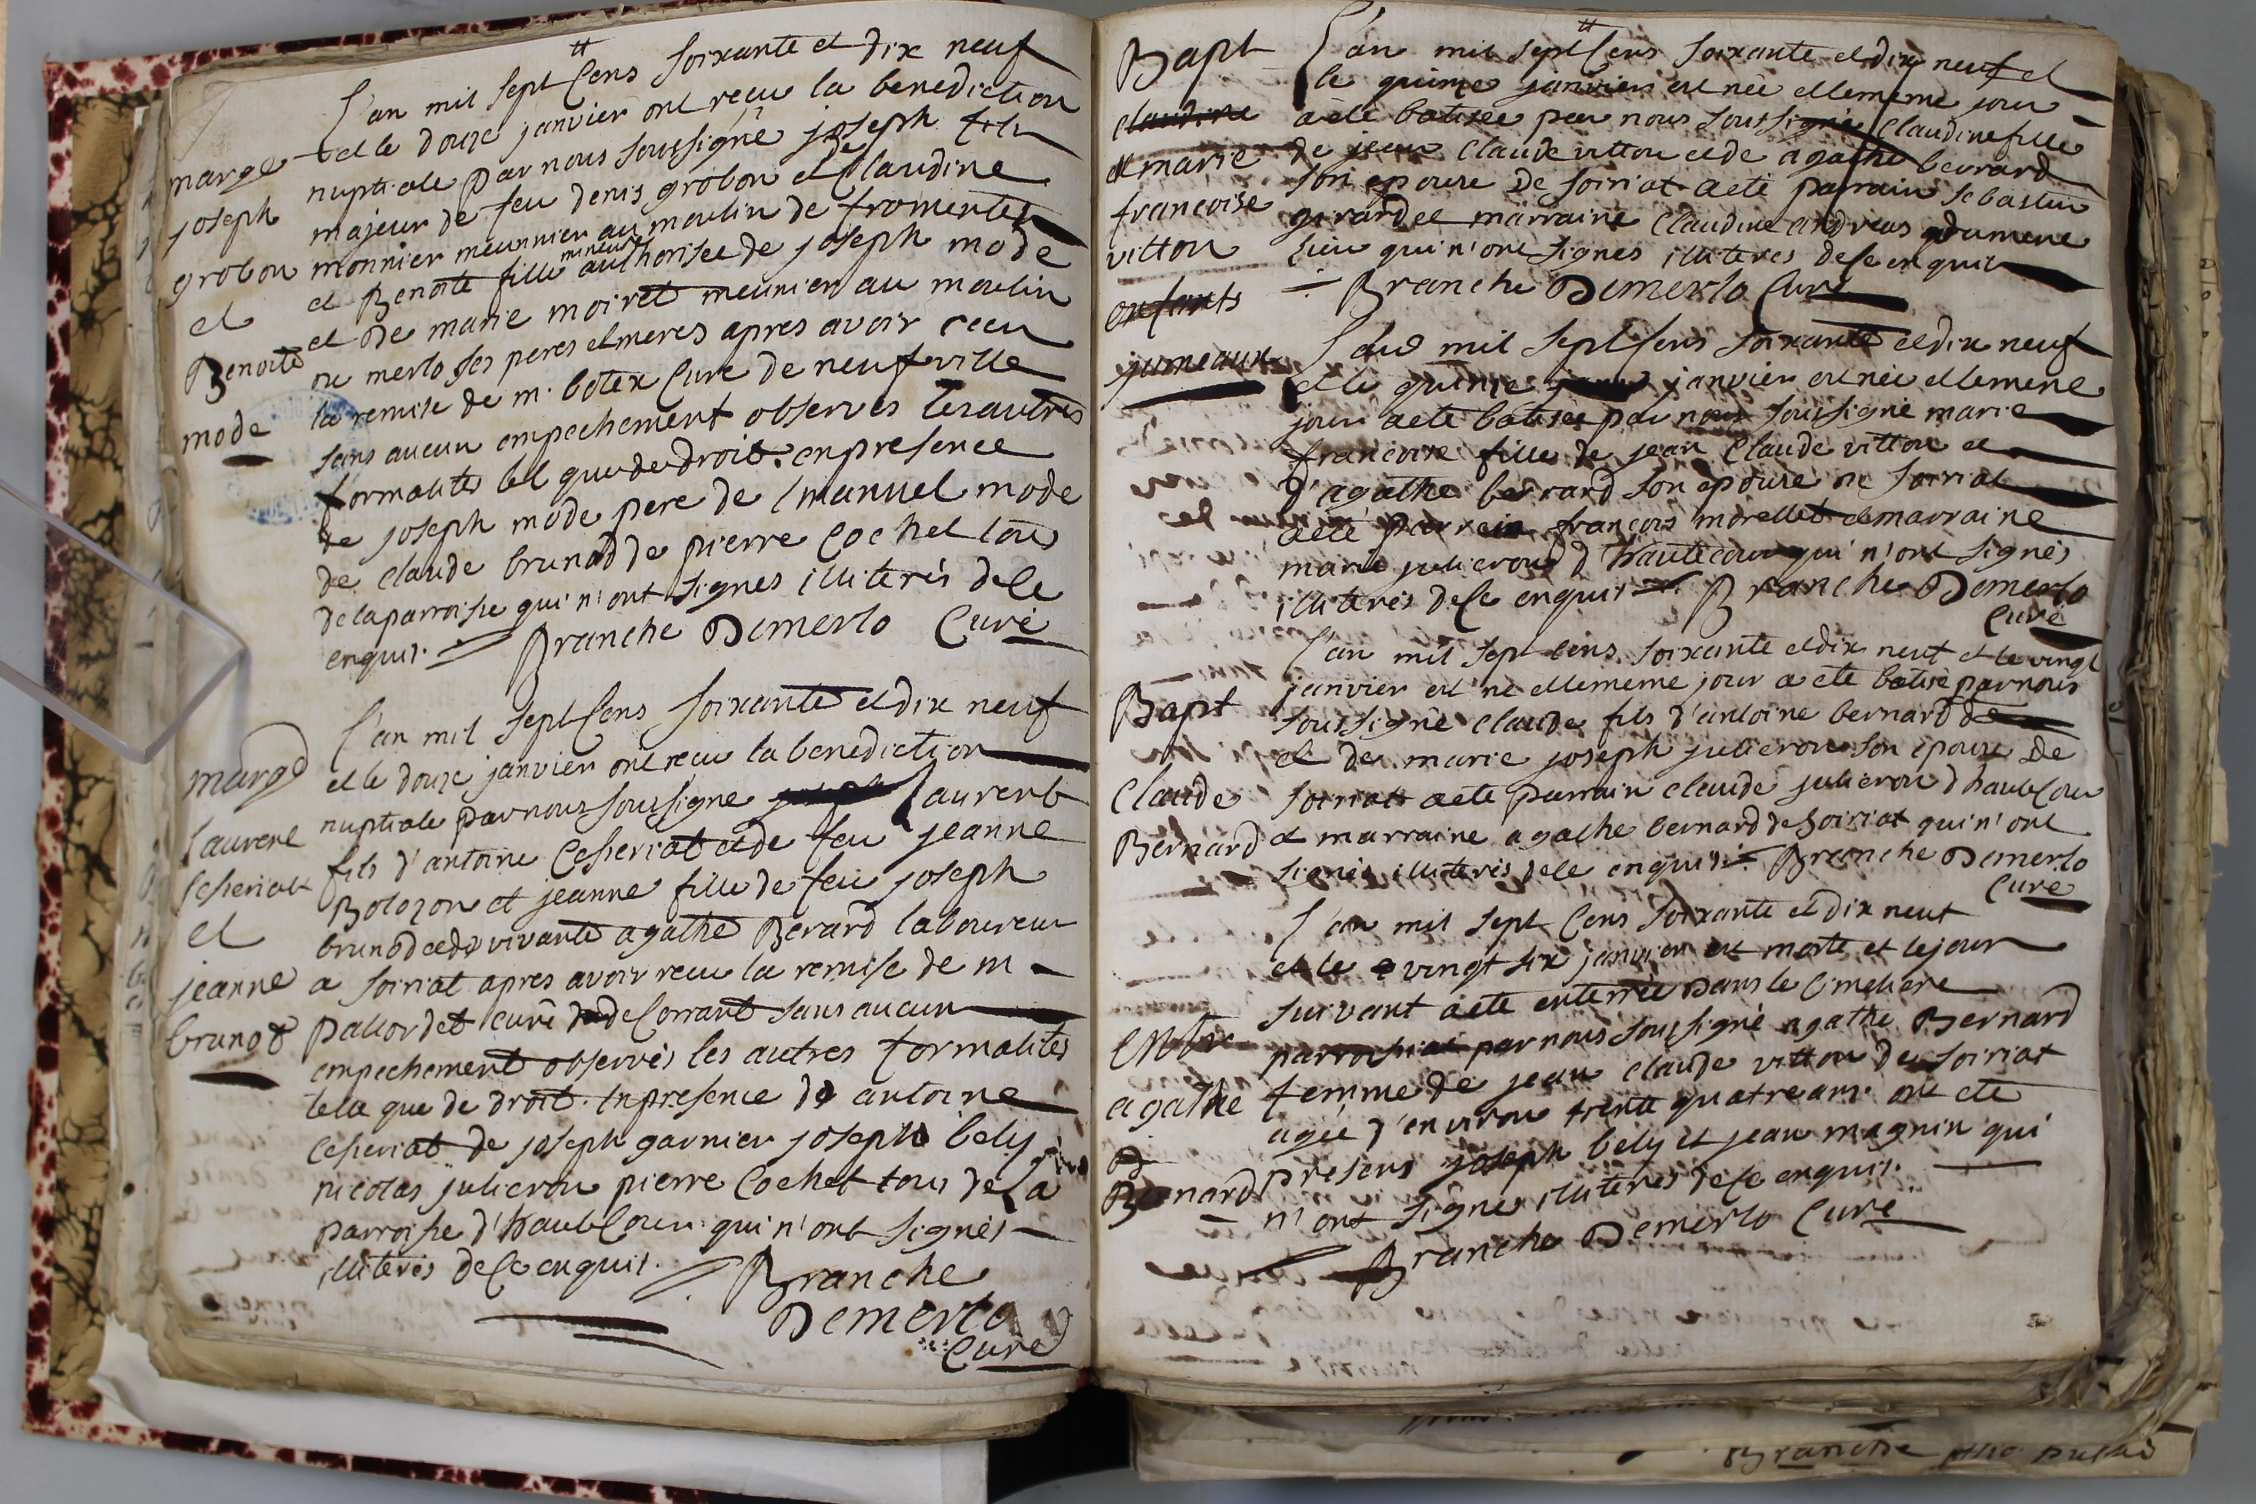 L'an mil sept Cens soixante et dix neuf
et le douze janvier ont recu la benediction
nuptiale par nous soussigné joseph fils
majeur de feu denis grobon et de Claudine
monnier meunnier au moulin de fromentes
et Benoite fille mineure authorisée de joseph mode
et de marie moiret meunier au moulin
ou merlo ses peres et meres apres avoir recu
la remise de m. botex Curé de neufville
sans aucun empechement observes les autres
formalités tel que de droit. en presence
de joseph mode pere de Emanuel mode
de claude brunod de pierre Cochet tous
de la parroisse qui n'ont signes illiterés de Ce
enquis. Branche Demerlo Curé
marge
joseph
grobon
et
Benoite
mode
L'an mil sept Cens soixante et dix neuf
et le douze janvier ont recu la benediction
nuptiale par nous soussigné Laurent
fils d'antoine Ceseriat et de feu jeanne
Bolozon et jeanne fille de feu joseph
brunod et de vivante agathe Berard laboureur
a soiriat apres avoir recu la remise de m
pallordet curé de Corrant sans aucun
empechement observés les autres formalités
tela que de droit. en presence de antoine
Ceseriat de joseph garnier joseph bely
nicolas julieron pierre Cochet tous de la
parroisse d'hautecour qui n'ont signés
illiterés de Ce enquis. Branche
Demerlo
Curé
marge
Laurent
Ceseriat
et
jeanne
brunod
L'an mil sept Cens soixante et dix neuf et
le quinze janvier est née et le meme jour
a été batisée par nous soussigné Claudine fille
de jean Claude vitton et de agathe berrard
son epouse de soiriat a eté parrain sebastien
girard et marraine Claudine andreas du meme
lieu qui n'ont signes illiteres de Ce enquis
Branche Demerlo Curé
Bapt
claudine
et marie
francoise
vitton
enfants
jumeaux
L'an mil sept Cens soixante et dix neuf
et le quinze janvier est née et le meme
jour a eté batisée par nous soussigné marie
francoise fille de jean Claude vitton et
d'agathe berrard son epouse de soiriat
a eté parrein françois morellet et marraine
marie julieron d'hautecour qui n'ont signés
illiterés de Ce enquis. Branche Demerlo
Curé
L'an mil sept Cens soixante et dix neuf et le vingt
janvier est né et le meme jour a eté batisé par nous
soussigné claude fils d'antoine bernard
et de marie joseph julieron son epouse De
soiriat a eté parrain claude julieron d'hautCour
et marraine agathe bernard de Soiriat qui n'ont
signés illiterés de Ce enquis. Branche Demerlo
Curé
Bapt
Claude
Bernard
L'an mil sept Cens soixante et dix neuf
et le vingt six janvier est morte et le jour
suivant a eté enterrée dans le Cimetiere
parroissial par nous soussigné agathe Bernard
femme de jean claude vitton de soiriat
agée d'environ trente quatre ans. ont eté
presens joseph bely et jean magnin qui
n'ont signés illiterés de Ce enquis.
Branche Demerlo Curé
agathe
Bernard
Branche